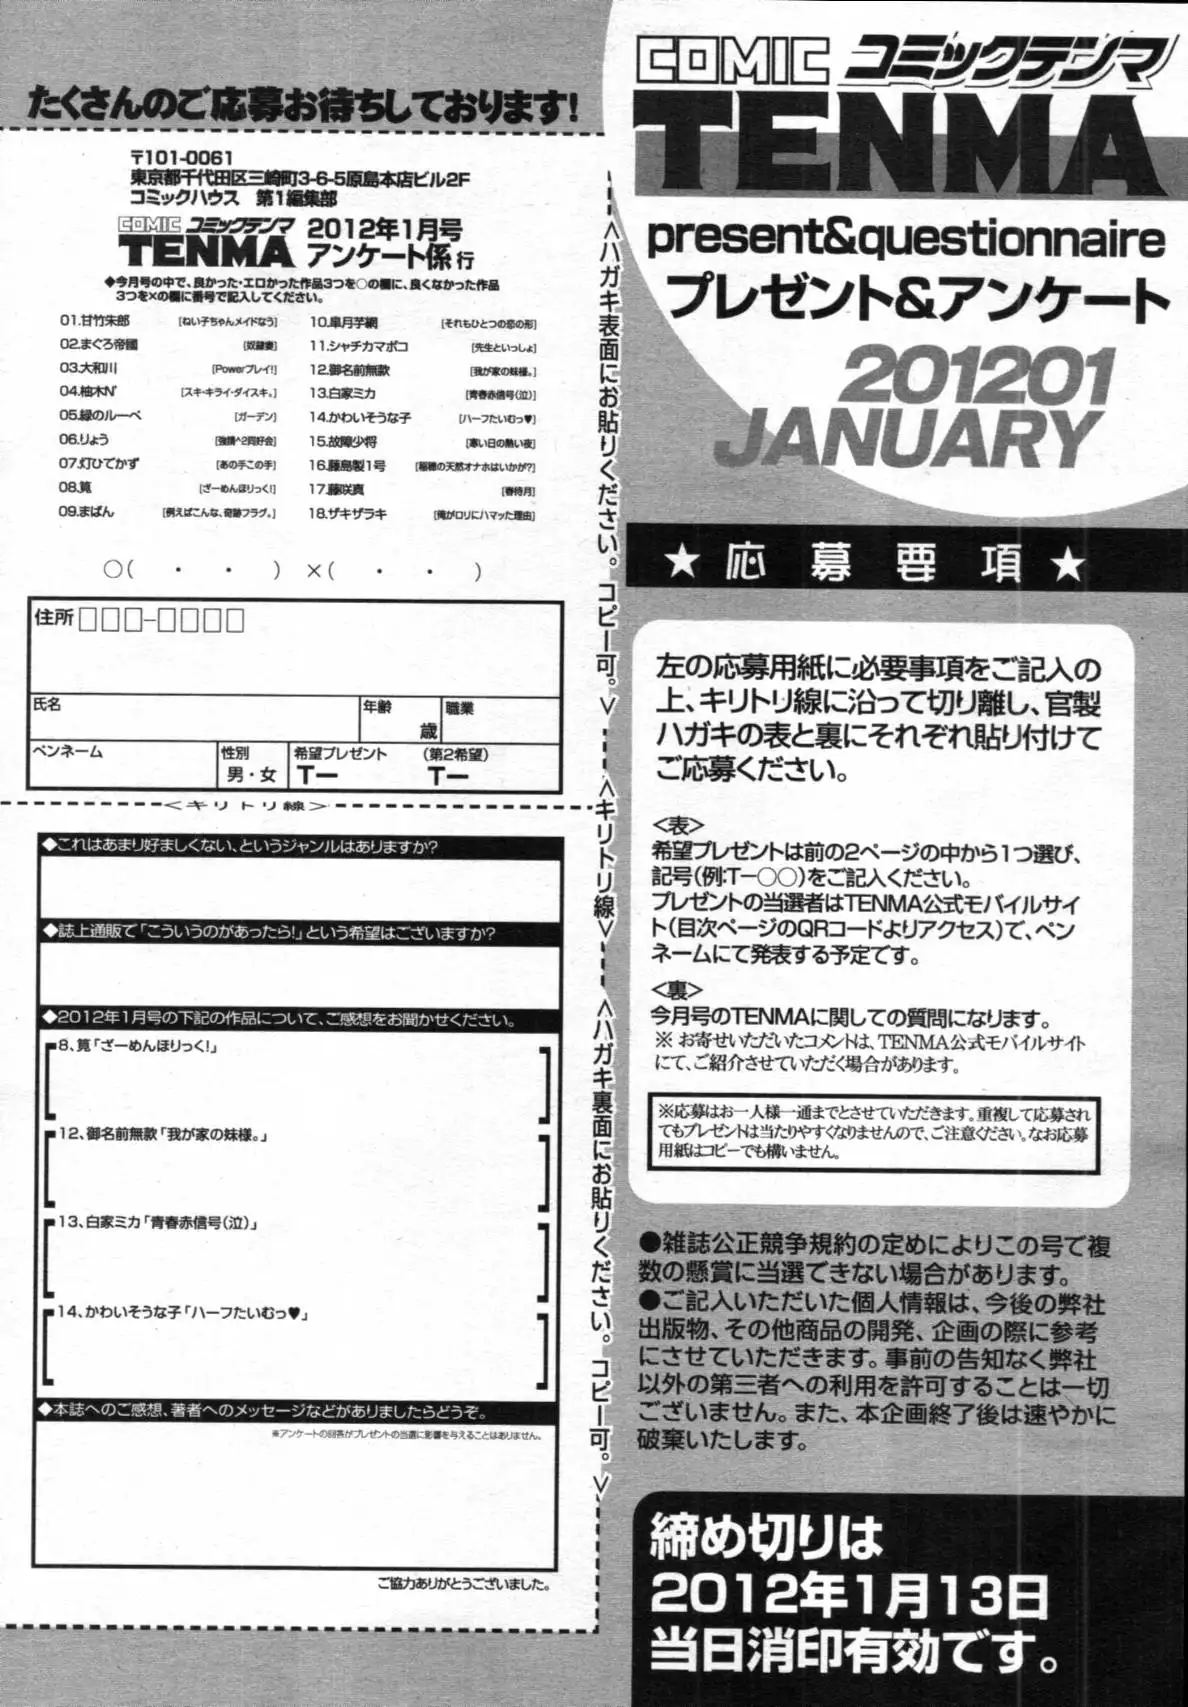 たくさんのご応募お待ちしております!
〒101-0061
東京都千代田区三崎町3-6-5原島本店ビル2F
コミックハウス 第1編集部
COMIC コミックテンマ
TENMA
2012年1月号
アンケート係 行
◆今月号の中で、良かった・エロかった作品3つを○の欄に、良くなかった作品
3つを×の欄に番号で記入してください。
01.甘竹朱郎 [ねい子ちゃんメイドなう]
02.まぐろ帝國 [奴隷妻]
03.大和川 [Powerプレイ!]
04.柚木N' [スキ・キライ・ダイスキ。]
05.緑のルーペ [ガーデン]
06.りょう
07.灯ひでかず [あの手この手]
08.筧 [ざーめんほりっく!]
09.まばん [例えばこんな、奇跡フラグ。]
10.皐月芋網 [それもひとつの恋の形]
11.シャチカマボコ [先生といっしょ]
12.御名前無款 [我が家の妹様。]
13.白家ミカ [青春赤信号(泣)]
14.かわいそうな子 [ハーフたいむっ♥]
15.故障少将 [寒い日の熱い夜]
16.藤島製1号 [稲穂の天然オナホはいかが?]
17.藤咲真 [春待月]
18.ザキザラキ [俺がロリにハマった理由]
○( ・ ・ ) ×( ・ ・ )
住所 □□□-□□□□
氏名
年齢
歳
職業
ペンネーム
性別
男・女
希望プレゼント
T ー
(第2希望)
T ー
<キリトリ線>
◆これはあまり好ましくない、というジャンルはありますか?
◆誌上通販で「こういうのがあったら!」という希望はございますか?
◆2012年1月号の下記の作品について、ご感想をお聞かせください。
8、筧「ざーめんほりっく!」
12、御名前無款「我が家の妹様。」
13、白家ミカ「青春赤信号(泣)」
14、かわいそうな子「ハーフたいむっ♥」
◆本誌へのご感想、著者へのメッセージなどがありましたらどうぞ。
※アンケートの回答がプレゼントの当選に影響を与えることはありません。
ご協力ありがとうございました。
<ハガキ表面にお貼りください。コピー可。>
<キリトリ線>
<ハガキ裏面にお貼りください。コピー可。>
COMIC コミックテンマ
TENMA
present&questionnaire
プレゼント&アンケート
201201
JANUARY
★応募要項★
左の応募用紙に必要事項をご記入の
上、キリトリ線に沿って切り離し、官製
ハガキの表と裏にそれぞれ貼り付けて
ご応募ください。
<表>
希望プレゼントは前の2ページの中から1つ選び、
記号(例:Tー○○)をご記入ください。
プレゼントの当選者はTENMA公式モバイルサイ
ト(目次ページのQRコードよりアクセス)で、ペン
ネームにて発表する予定です。
<裏>
今月号のTENMAに関しての質問になります。
※ お寄せいただいたコメントは、TENMA公式モバイルサイト
にて、ご紹介させていただく場合があります。
※応募はお一人様一通までとさせていただきます。重複して応募され
てもプレゼントは当たりやすくなりませんので、ご注意ください。なお応募
用紙はコピーでも構いません。
●雑誌公正競争規約の定めによりこの号で複
数の懸賞に当選できない場合があります。
●ご記入いただいた個人情報は、今後の弊社
出版物、その他商品の開発、企画の際に参考
にさせていただきます。事前の告知なく弊社
以外の第三者への利用を許可することは一切
ございません。また、本企画終了後は速やかに
破棄いたします。
締め切りは
2012年1月13日
当日消印有効です。